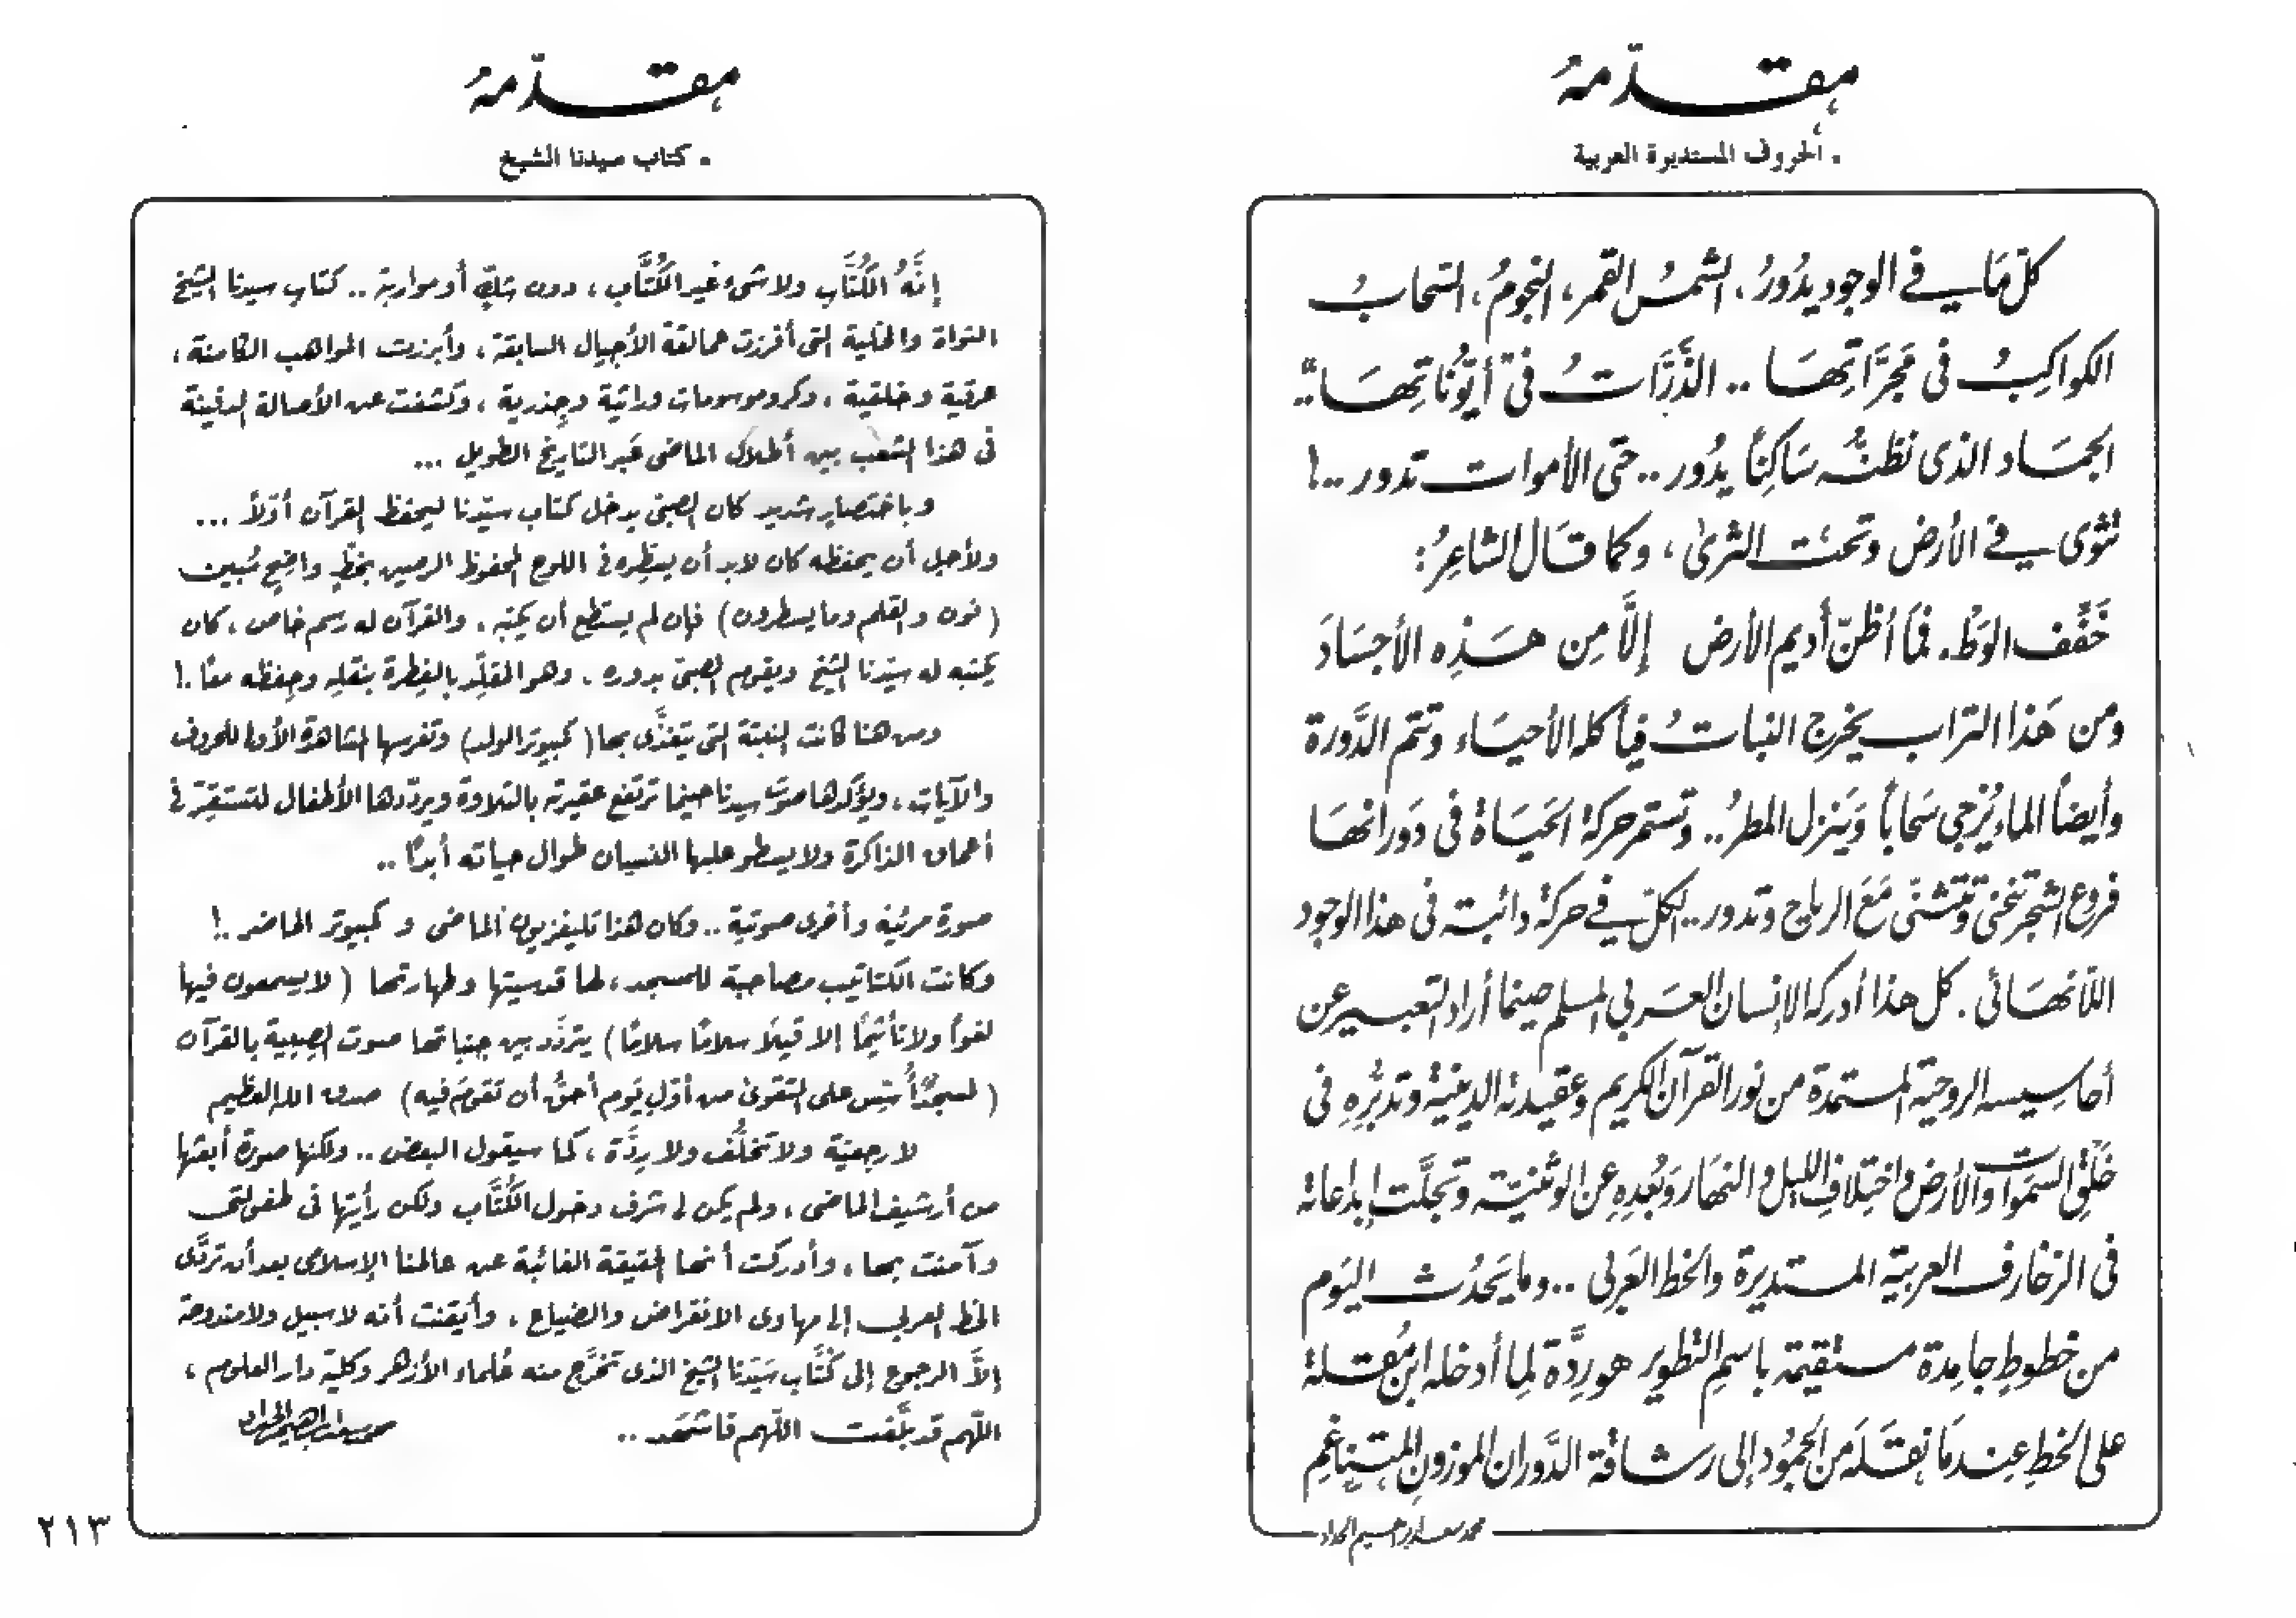 مقدّمة
. الحروف المستديرة العربية
كلّ مَا في الوجود يدُورُ، الشمسُ القمر، النجومُ، السَّحابُ
الكواكبُ فى مَجرَّاتِهَا .. الذَّرَّاتُ فى أيّوُنَاتِهَا ..
الجمَاد الذى نظنُّه سَاكِنًا يدُور .. حتى الأموات تدور ..!
تثوى في الأرض وتحت الثرىٰ، وكما قَال الشاعِرُ:
خَفِّف الوَطْء فمَا أظنّ أديم الأرض إلَّا مِن هَذِه الأجسَادَ
ومن هَذا التراب يخرج النباتُ فيأكله الأحيَاء وتتم الدَّورة
وأيضاً الماء يُزجى سَحاباً وَيَنزل المطرُ .. وتستمر حركة الحَيَاة فى دَورانهَا
فروع الشجر تنحنى وتتثنّى مَعَ الرياح وتدور .. الكلّ في حركة دائبة فى هذا الوجود
اللّانهَائى . كل هذا أدركه الإنسان العَربي المسلم حينما أراد التعبير عن
أحاسيسه الروحيّة المستمدة من نور القرآن الكريم وعقيدته الدينيّة وتدبُّرِهِ فى
خَلْقِ السمَوات والأرض واختِلافِ الليل والنهَار وَبُعْدِهِ عن الوثنيّة وتجلَّت إبداعاته
فى الزخارف العربيّة المستديرة والخط العَربى .. وما يَحدُث اليَوم
من خطوطٍ جامِدة مستقيمة باسمِ التطوير هو رِدَّة لِما أدخله ابن مُقلة
على الخطِ عِندمَا نقَلَه مَن الجمُود إلى رشاقة الدَّوران الموزونِ المتناغم
محمد سعد إبراهيم الحداد
مقدّمة
. كتاب سيدنا الشيخ
إنَّهُ الكُتَّاب ولا شىء غير الكُتَّاب، دون شكٍ أو مواربة .. كتاب سيدنا الشيخ
النواة والخلية التى أفرزت عمالقة الأجيال السابقة، وأبرزت المواهب الكامنة،
عرقية وخلقية، وكروموسومات وراثية وجِذرية، وكشفت عن الأصالة الدفينة
فى هذا الشعب بين أطلال الماضى عَبر التاريخ الطويل ...
وباختصارٍ شديد كان الصبىّ يدخل كتاب سيّدنا ليحفظ القرآن أوّلاً ...
ولأجل أن يحفظه كان لابد أن يسطره فى اللوح المحفوظ الرصين بخطٍّ واضحٍ مُبين
(نون والقلم وما يسطرون) فإن لم يستطع أن يكتبه، والقرآن له رسم خاص، كان
يكتبه له سيّدنا الشيخ ويقوم الصبىّ بدوره، وهو المقلِّد بالفِطرة بنقلِه وحِفظه معًا.!
ومن هنا كانت النبتة التى يتغذَّى بها (كمبيوتر الولد) وتغرسها المشاهدة الأولى للحروف
والآيات، ويؤكّدها صوت سيدنا حينما ترتفع عقيرته بالتلاوة ويردّدها الأطفال لتستقِرّ فى
أعماق الذاكرة ولا يسطو عليها النسيان طوال حياته أبدًا ..
صورة مرئية وأخرى صوتية .. وكان هذا تليفزيون الماضى وكمبيوتر الحاضر .!
وكانت الكتاتيب مصاحبة للمسجد، لها قدسيتها وطهارتها (لا يسمعون فيها
لغواً ولا تأثيمًا إلا قيلاً سلامًا سلامًا) يتردَّد بين جنباتها صوت الصِبية بالقرآن
(لمسجدٌ أُسّس على التقوىٰ من أوّلِ يَومٍ أحقُّ أن تقومَ فيه) صدق الله العظيم
لا رجعيّة ولا تخلُّف ولا ردَّة، كما سيقول البعض .. ولكنها صورة أبعثها
من أرشيف الماضى، ولم يكن لى شرف دخول الكُتَّاب ولكن رأيتها فى طفولتى
وآمنت بها، وأدركت أنها الحقيقة الغائبة عن عالمنا الإسلامى بعد أن تردَّى
الخط العربى إلى مهاوى الانقراض والضياع، وأيقنت أنه لا سبيل ولا مندوحة
إلاَّ الرجوع إلى كُتَّاب سَيّدنا الشيخ الذى تخرَّج منه عُلماء الأزهر وكلية دار العلوم،
اللّهم قد بلَّغت اللّهم فاشهد ..
محمد سعد إبراهيم الحداد
٢١٣